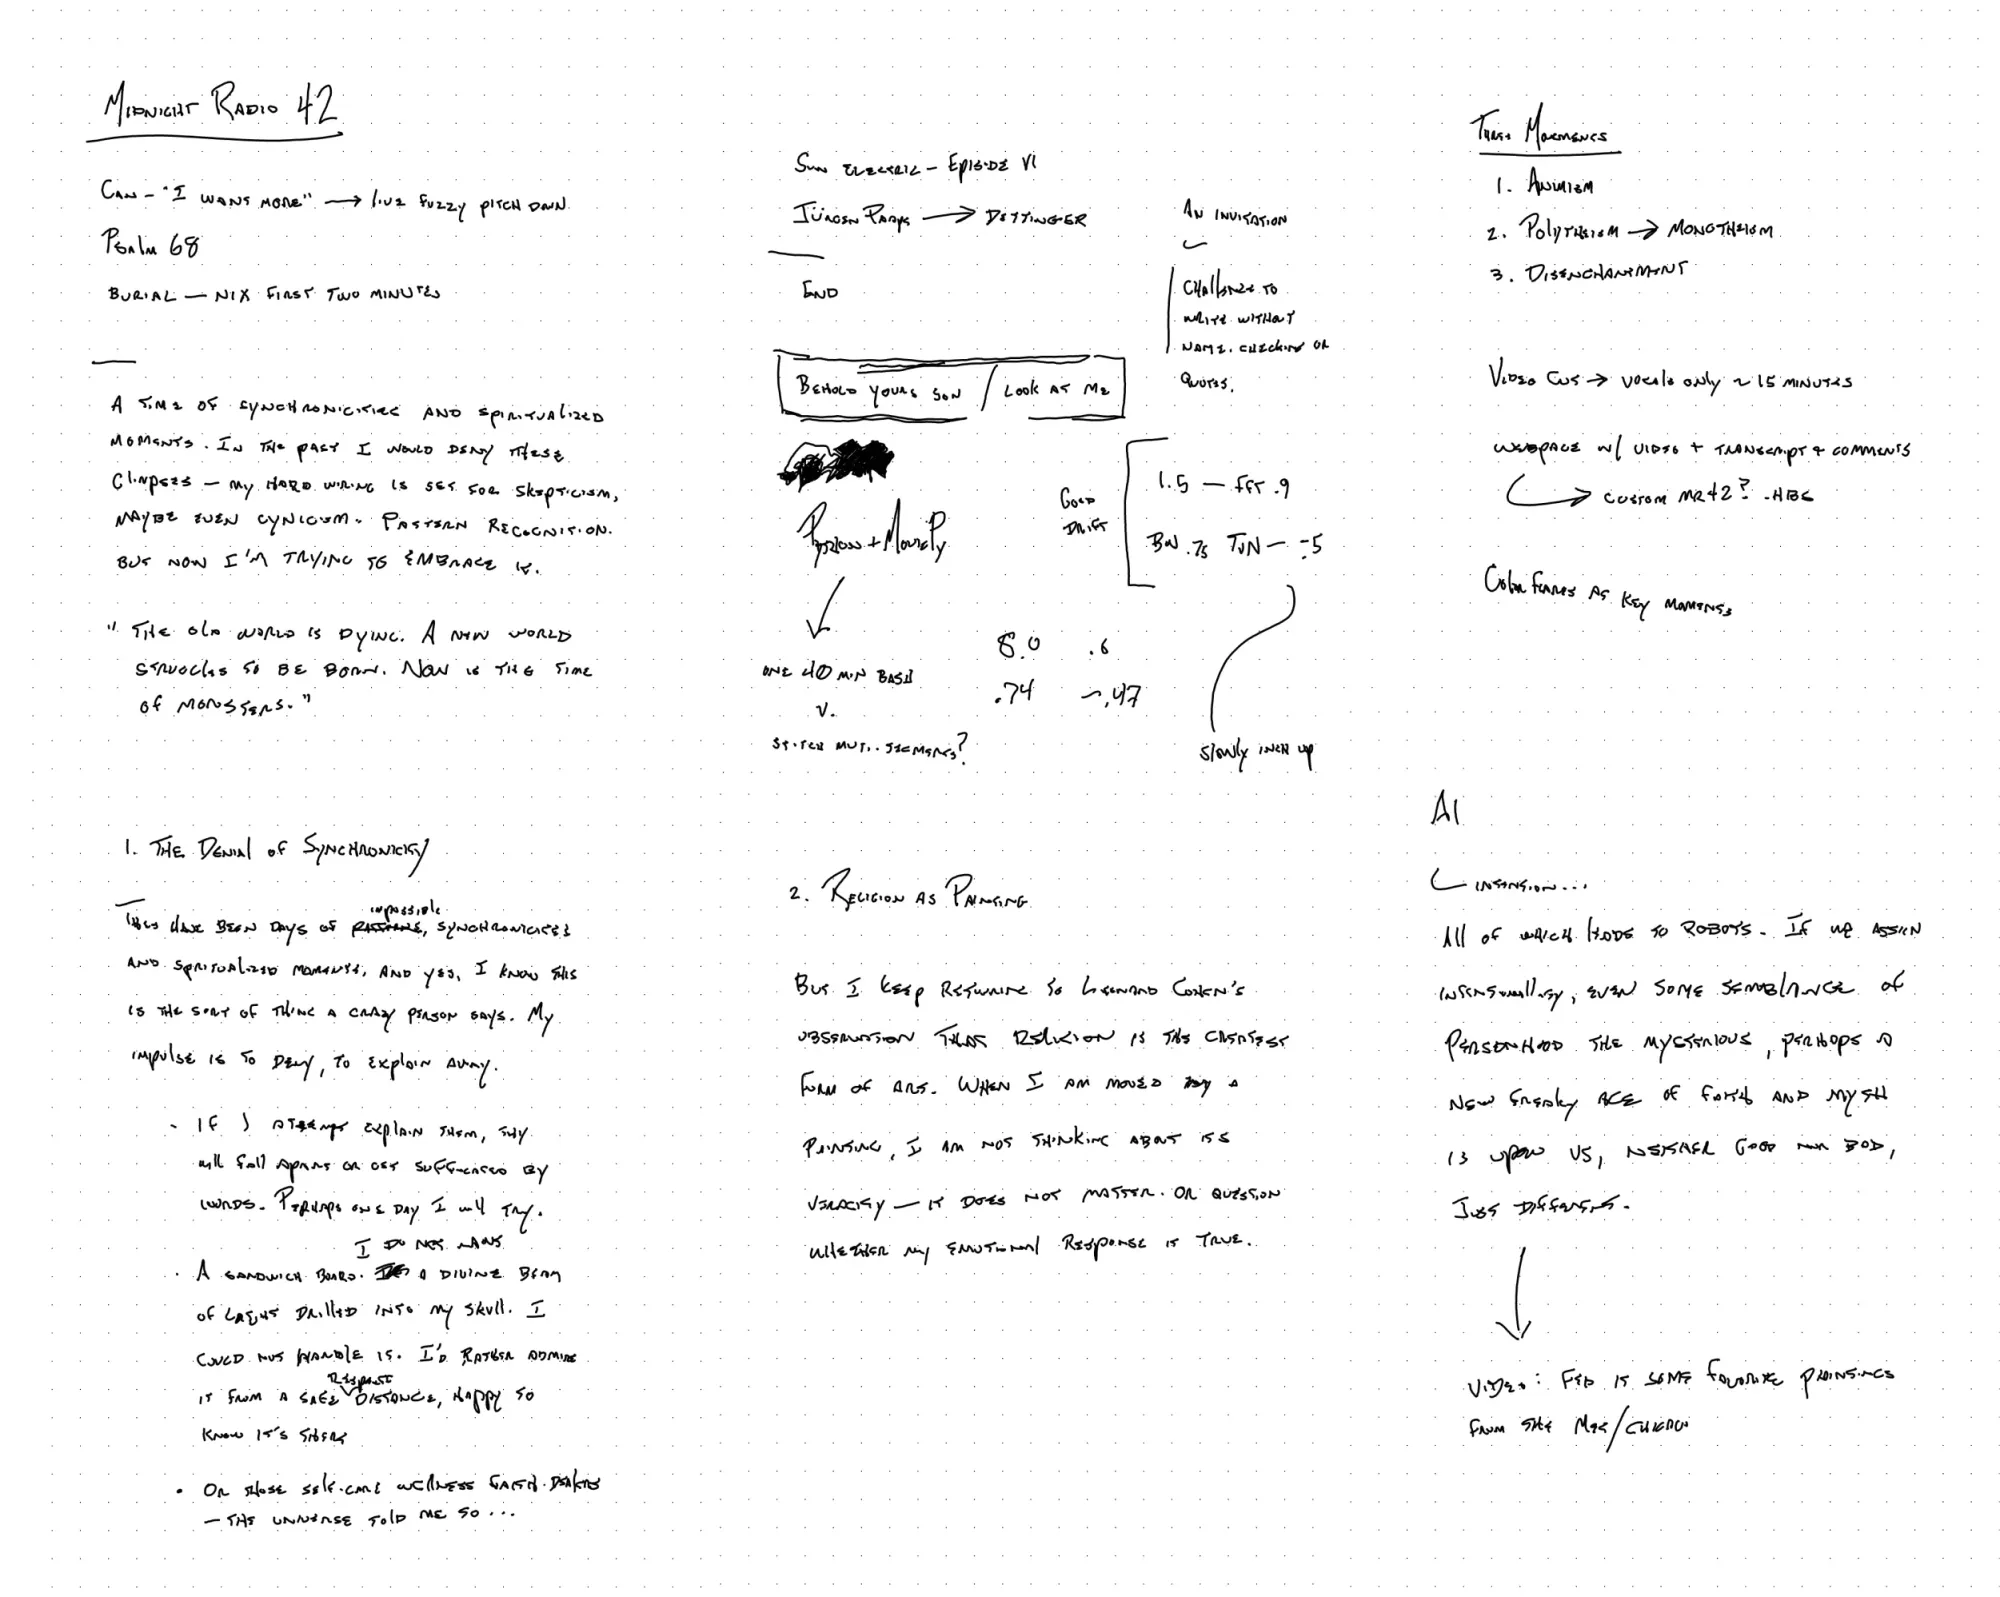 MIDNIGHT RADIO 42
CAN – "I WANT MORE" → LIVE FUZZY PITCH DOWN
PSALM 68
BURIAL — NIX FIRST TWO MINUTES
A TIME OF SYNCHRONICITIES AND SPIRITUALIZED
MOMENTS. IN THE PAST I WOULD DENY THESE
GLIMPSES — MY HARD WIRING IS SET FOR SKEPTICISM,
MAYBE EVEN CYNICISM. PATTERN RECOGNITION.
BUT NOW I'M TRYING TO EMBRACE IT.
"THE OLD WORLD IS DYING. A NEW WORLD
STRUGGLES TO BE BORN. NOW IS THE TIME
OF MONSTERS."
SUN ELECTRIC – EPISODE VI
JÜRGEN PAAPE → DETTINGER
END
AN INVITATION
CHALLENGE TO
WRITE WITHOUT
NAME-CHECKING OR
QUOTES.
BEHOLD YOUR SON / LOOK AT ME
GOOD
DRIFT
1.5 — FFT .9
BW .75 TUN — -.5
8.0 .6
.74 –.47
SLOWLY INCH UP
ONE 40 MIN BASH
V.
STITCH MULTI. SEGMENTS?
THREE MOVEMENTS
1. ANIMISM
2. POLYTHEISM → MONOTHEISM
3. DISENCHANTMENT
VIDEO CUT → VOCALS ONLY ~ 15 MINUTES
WEBPAGE W/ VIDEO + TRANSCRIPT + COMMENTS
CUSTOM MR42? .HBS
COLOR FLARES AS KEY MOMENTS
1. THE DENIAL OF SYNCHRONICITY
IMPOSSIBLE
THESE HAVE BEEN DAYS OF SYNCHRONICITIES
AND SPIRITUALIZED MOMENTS, AND YES, I KNOW THIS
IS THE SORT OF THING A CRAZY PERSON SAYS. MY
IMPULSE IS TO DENY, TO EXPLAIN AWAY.
· IF I ATTEMPT EXPLAIN THEM, THEY
WILL FALL APART OR GET SUFFOCATED BY
WORDS. PERHAPS ONE DAY I WILL TRY.
I DO NOT WANT
· A SANDWICH BOARD. A DIVINE BEAM
OF LIGHT DRILLED INTO MY SKULL. I
COULD NOT HANDLE IT. I'D RATHER ADMIRE
RESPECT
IT FROM A SAFE DISTANCE, HAPPY TO
KNOW IT'S THERE
· OR THOSE SELF-CARE WELLNESS FAITH-DEALERS
— THE UNIVERSE TOLD ME SO...
2. RELIGION AS PAINTING
BUT I KEEP RETURNING TO LEONARD COHEN'S
OBSERVATION THAT RELIGION IS THE GREATEST
FORM OF ART. WHEN I AM MOVED BY A
PAINTING, I AM NOT THINKING ABOUT ITS
VERACITY — IT DOES NOT MATTER. OR QUESTION
WHETHER MY EMOTIONAL RESPONSE IS TRUE.
AI
INTENSION...
ALL OF WHICH LEADS TO ROBOTS. IF WE ASSIGN
INTENTIONALITY, EVEN SOME SEMBLANCE OF
PERSONHOOD THE MYSTERIOUS, PERHAPS A
NEW FREAKY AGE OF FAITH AND MYTH
IS UPON US, NEITHER GOOD NOR BAD,
JUST DIFFERENT.
VIDEO: FEED IT SOME FAVORITE PAINTINGS
FROM THE MET/CHICAGO